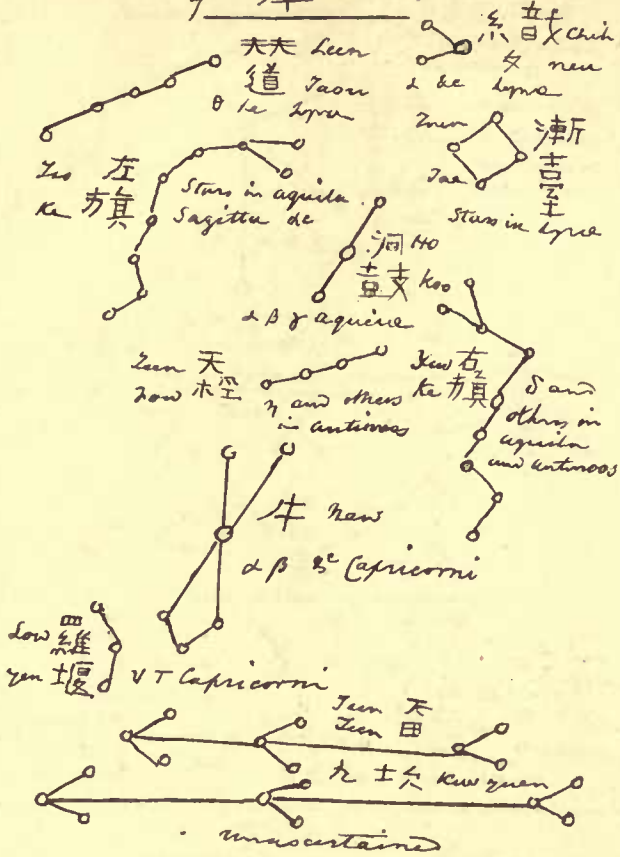 7 牛
輦 Leen
道 Taou
θ &c Lyra
織 Chih
女 neu
α &c Lyra
漸 臺
Tseen
Tae
Stars in Lyra
Tso 左
Ke 旗
Stars in aquila
Sagitta &c
河 Ho
鼓 Koo
α β γ aquilæ
Teen 天
Fow 桴
η and others
in antinoos
Yew 右
Ke 旗
δ and
others in
aquila
and antinoos
牛 New
α β &c Capricorni
Low 羅
yen 堰
ν τ Capricorni
Teen 天
Teen 田
九 坎 Kew
unascertained